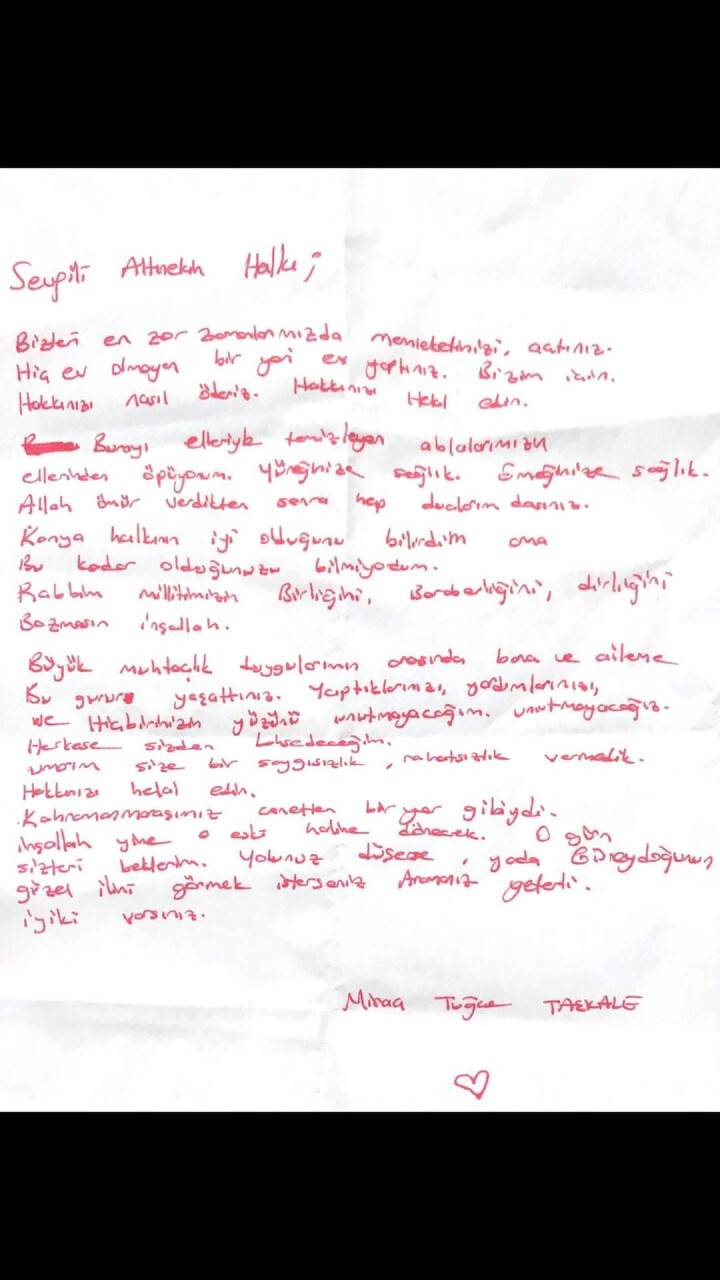 Sevgili Altınekin Halkı;
Bizleri en zor zamanlarımızda memleketinizi, açtınız.
Hiç ev olmayan bir yeri ev yaptınız. Bizim için.
Hakkınızı nasıl öderiz. Hakkınızı Helal edin.
Burayı elleriyle temizleyen ablalarımızın
ellerinden öpüyorum. Yüreğinize sağlık. Emeğinize sağlık.
Allah ömür verdikten sonra hep dualarım dasınız.
Konya halkının iyi olduğunu bilirdim ama
Bu kadar olduğunuzu bilmiyodum.
Rabbim millitimizin Birliğini, Beraberliğini, dirliğini
Bozmasın inşallah.
Büyük muhtaçlık duygularının arasında bana ve aileme
Bu gururu yaşattınız. Yaptıklarınızı, yardımlarınızı,
ve Hiçbirinizin yüzünü unutmayacağım. unutmayacağız.
Herkese sizden bahsedeceğim.
umarım size bir saygısızlık, rahatsızlık vermedik.
Hakkınızı helal edin.
Kahramanmaraşımız cenetten bir yer gibiydi.
inşallah yine o eski haline dönecek. O gün
sizleri beklerim. Yolunuz düşerse, yada Güneydoğunun
güzel ilini görmek isterseniz Aramanız yeterli.
iyiki varsınız.
Miraç Tuğçe TAŞKALE